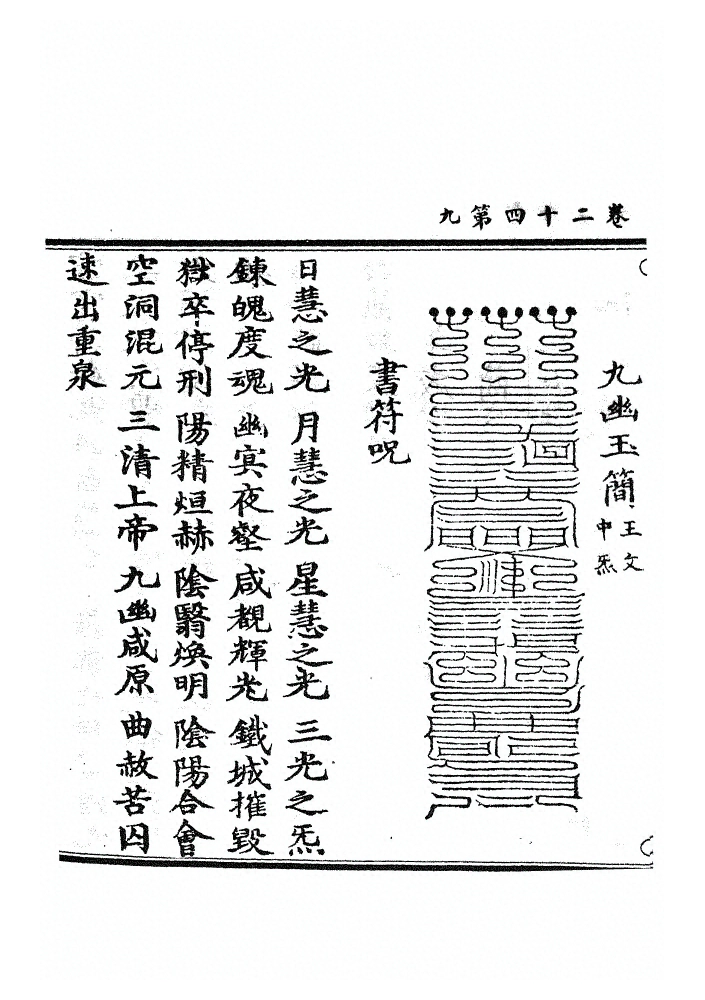 卷二十四第九
九幽玉簡
王文
中炁
書符呪
日慧之光 月慧之光 星慧之光 三光之炁
鍊魄度魂 幽㝠夜壑 咸覩輝光 鐵城摧毀
獄卒停刑 陽精烜赫 陰翳煥明 陰陽合會
空洞混元 三清上帝 九幽咸原 曲赦苦囚
速出重泉